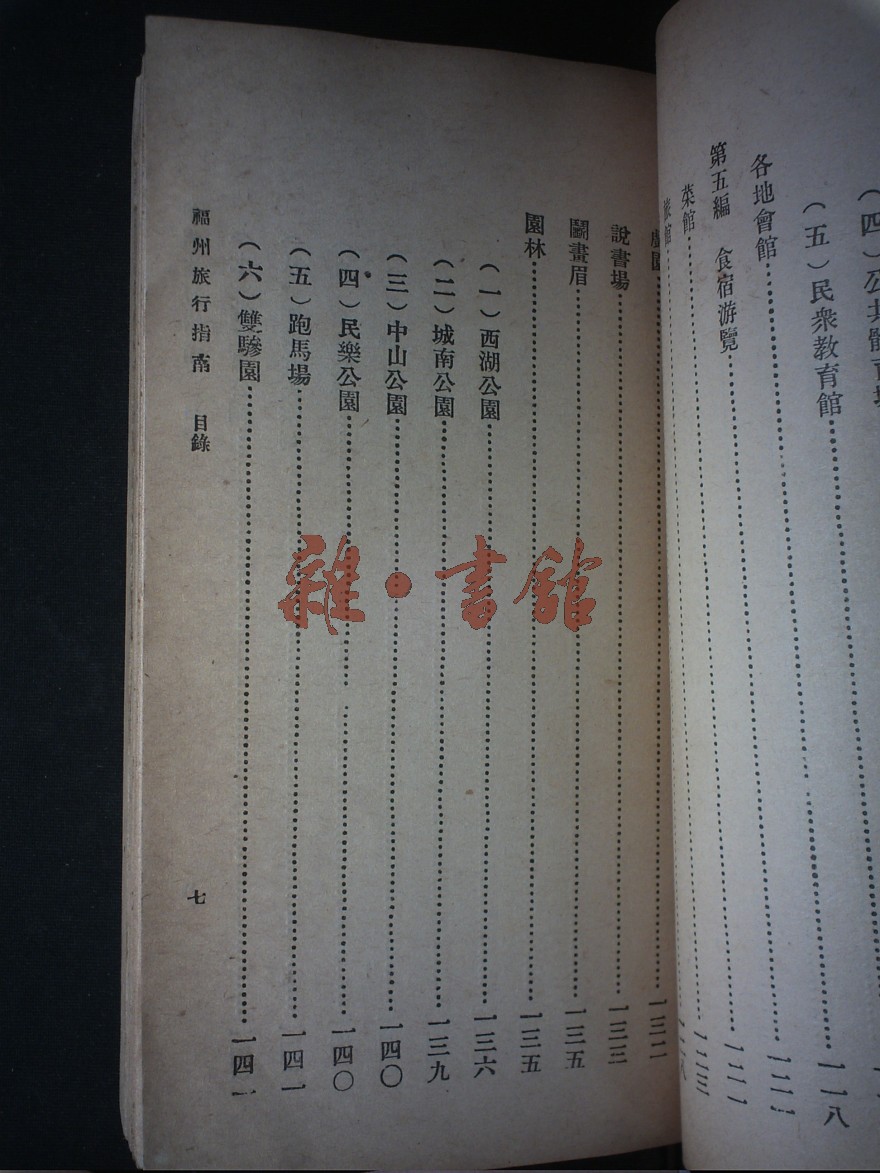 (四)公共體育場
(五)民衆教育館 一一八
各地會館
第五編 食宿游覽
菜館
旅館
說書場 一三三
鬬畫眉 一三五
園林 一三五
(一)西湖公園 一三六
(二)城南公園 一三九
(三)中山公園 一四〇
(四)民樂公園 一四〇
(五)跑馬場 一四一
(六)雙驂園 一四一
福州旅行指南 目錄 七
雜·書館